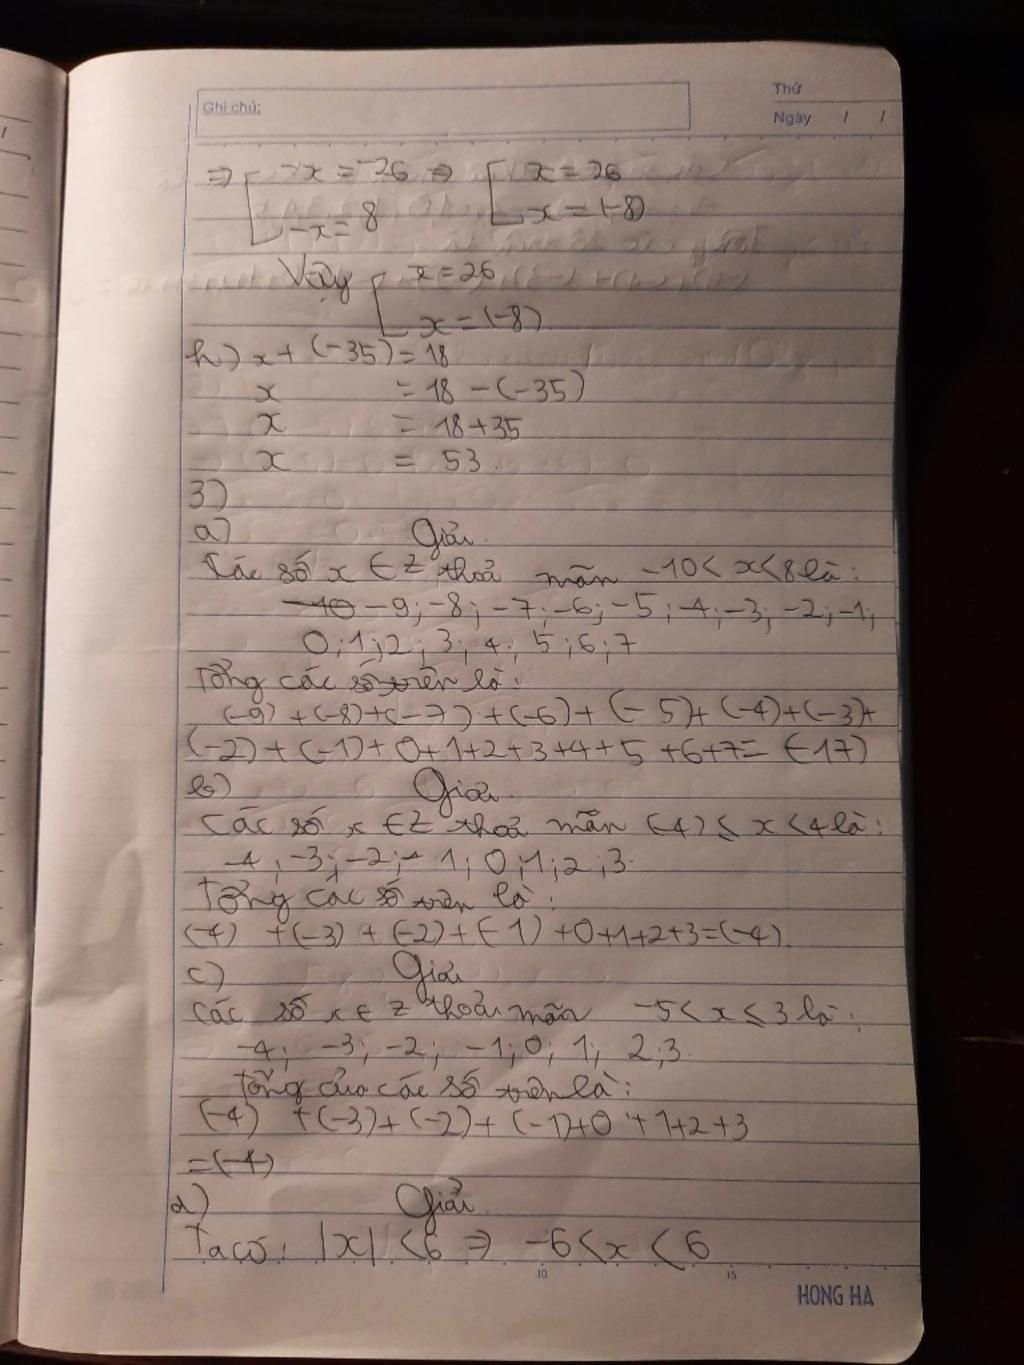 Ghi chú:
Thứ
Ngày / /
⇒ [ -x = -26 ⇒ [ x = 26
-x = 8 x = (-8)
Vậy [ x = 26
x = (-8)
h) x + (-35) = 18
x = 18 - (-35)
x = 18 + 35
x = 53.
3)
a) Giải.
Các số x ∈ Z thoả mãn -10 < x < 8 là:
-10 -9; -8; -7; -6; -5; -4; -3; -2; -1;
0; 1; 2; 3; 4; 5; 6; 7
Tổng các số trên là:
(-9) + (-8) + (-7) + (-6) + (-5) + (-4) + (-3) +
(-2) + (-1) + 0 + 1 + 2 + 3 + 4 + 5 + 6 + 7 = (-17)
b) Giải.
Các số x ∈ Z thoả mãn (-4) ≤ x < 4 là:
-4; -3; -2; -1; 0; 1; 2; 3.
Tổng các số trên là:
(-4) + (-3) + (-2) + (-1) + 0 + 1 + 2 + 3 = (-4).
c) Giải
Các số x ∈ Z thoả mãn -5 < x ≤ 3 là:
-4; -3; -2; -1; 0; 1; 2; 3.
Tổng của các số trên là:
(-4) + (-3) + (-2) + (-1) + 0 + 1 + 2 + 3
= (-4)
d) Giải
Ta có: |x| < 6 ⇒ -6 < x < 6
10 15
HONG HA